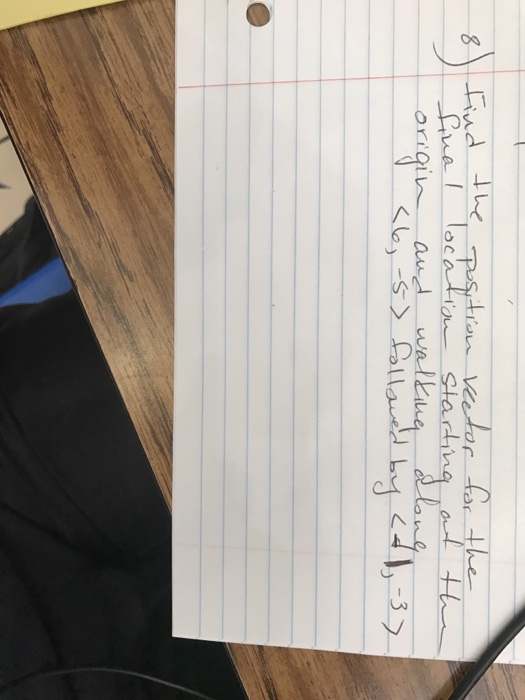 8) Find the position vector for the
final location starting at the
origin and walking along
<6, -5> followed by < 1, -3>